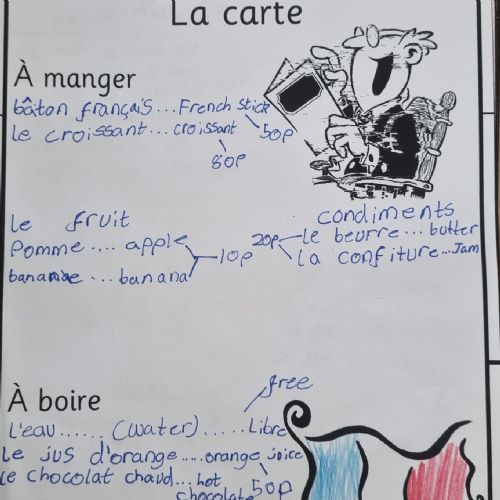 La carte
À manger
bâton français...French stick
50p
le croissant...croissant
80p
le fruit
pomme....apple
10p
banane...banana
condiments
20p
le beurre...butter
la confiture...Jam
free
À boire
L'eau......(water).....Libre
Le jus d'orange.....orange joice
le chocolat chaud...hot
chocolate 50p